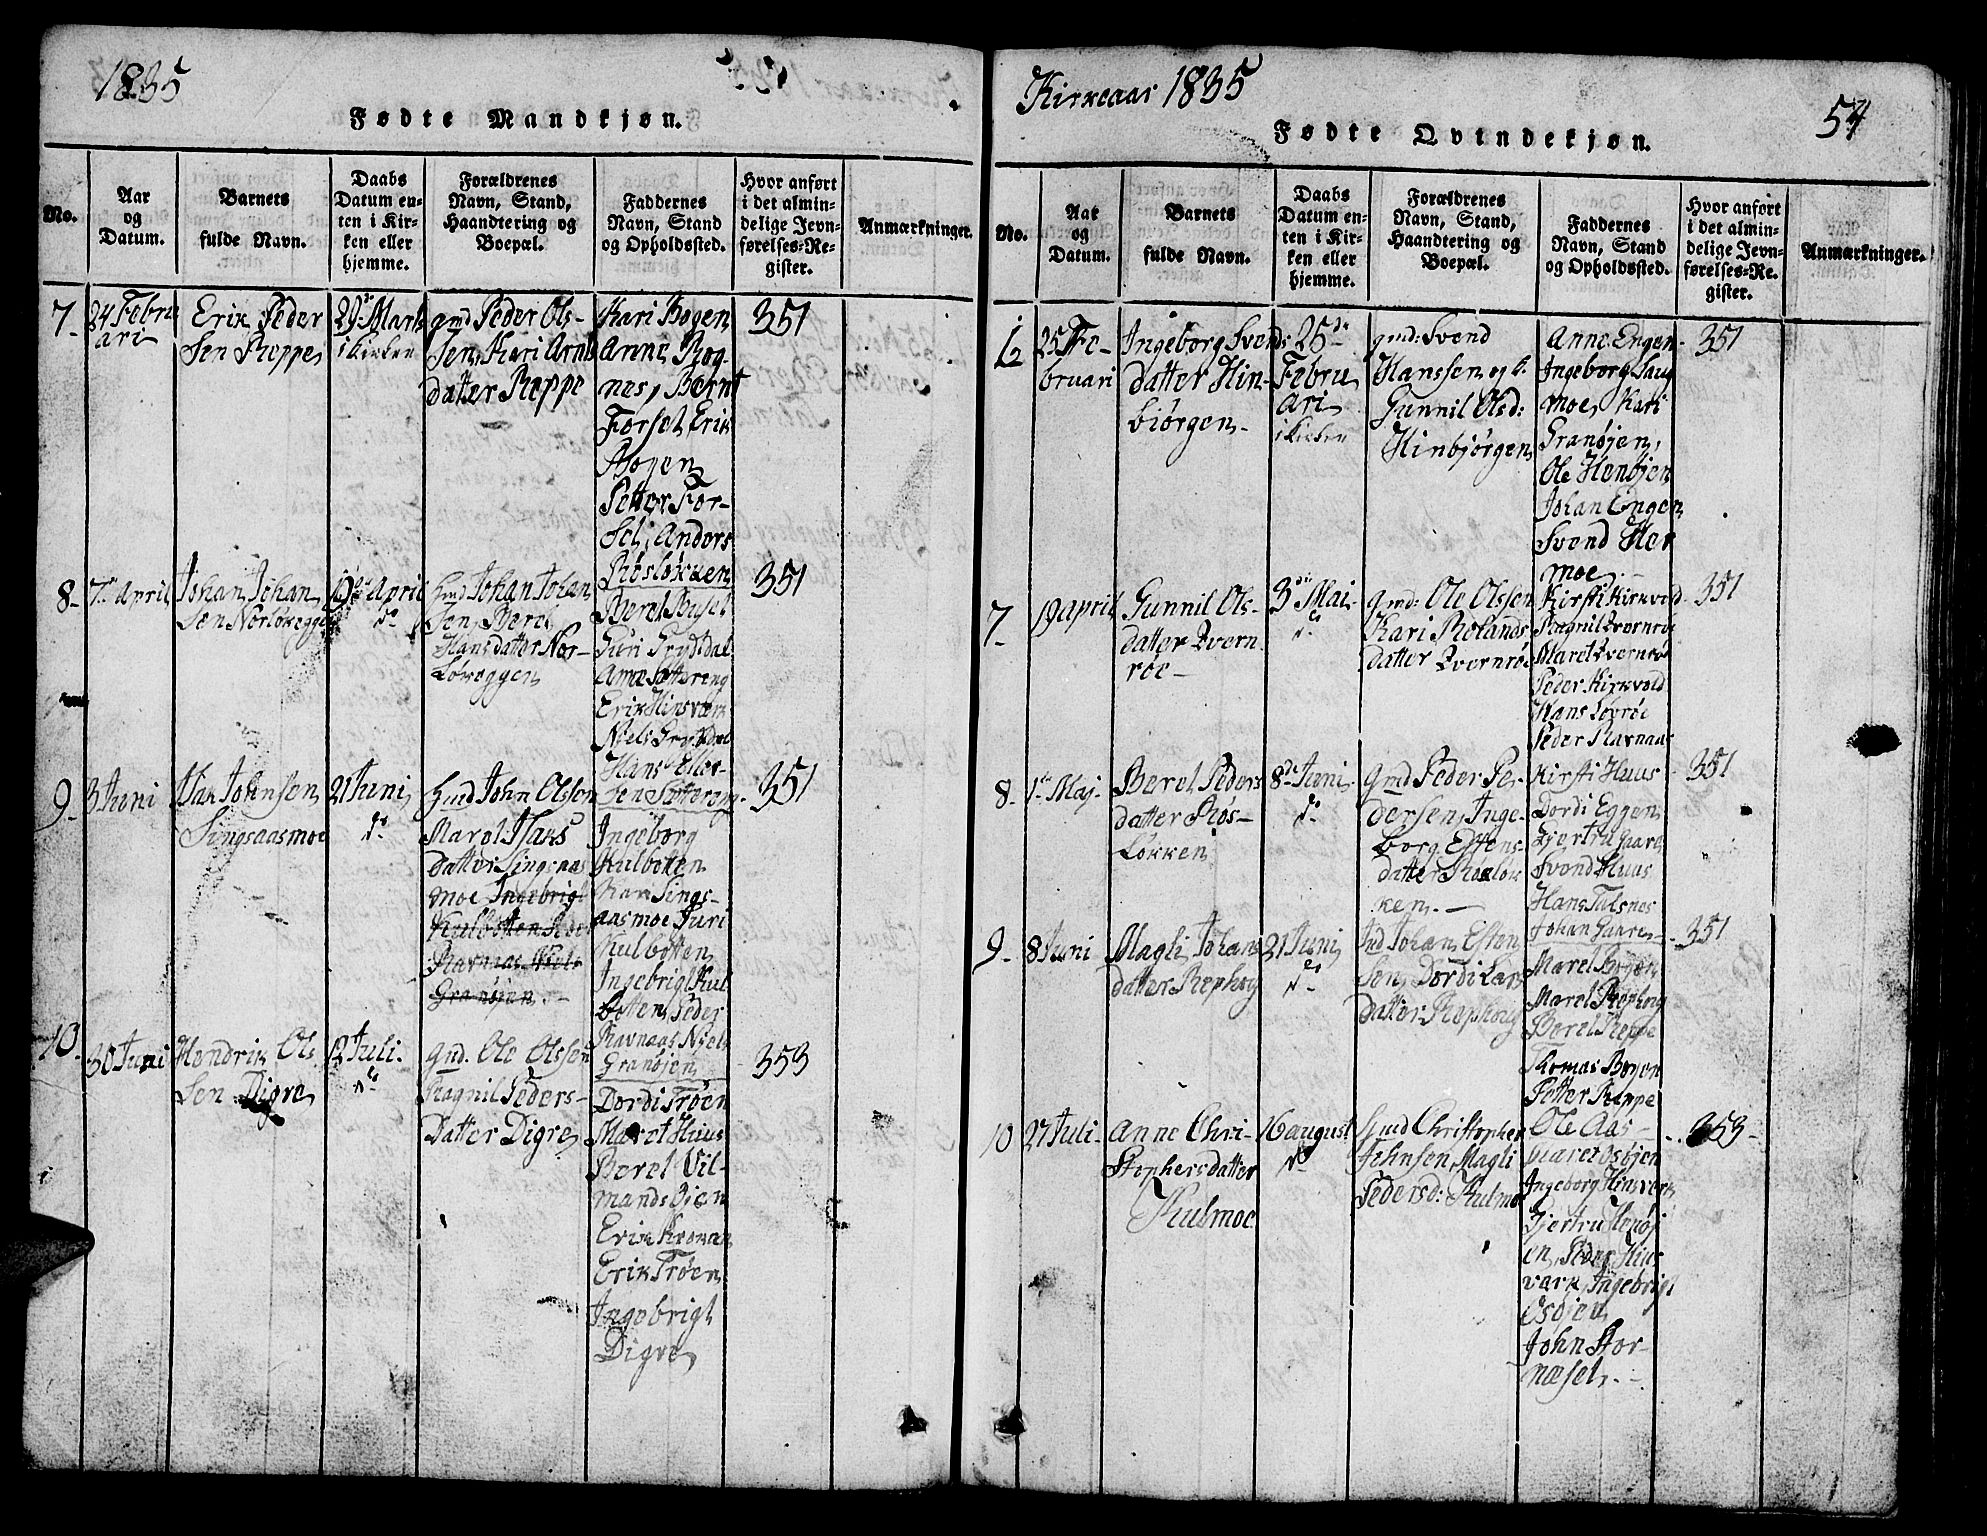 1835
Fødte Mandkjøn.
No.
Aar
og
Datum.
Barnets
fulde Navn.
Daabs
Datum en-
ten i Kir-
ken eller
hjemme.
Forældrenes
Navn, Stand,
Haandtering og
Boepæl.
Faddernes
Navn, Stand
og Opholdssted.
Hvor anført
i det almin-
delige Jevn-
førelses-Re-
gister.
Anmærkninger.
7
24 Febru
ari
Erik Peder
Sen Reppe
29 Marts
i kirken
gmd Peder Ols-
Sen, Kari Arnts
datter Reppe
Kari Bogen
Anne Rog-
nes, Bærnt
Forset, Erik
Bogen
Petter For-
Set, Anders
Røsløkken
351
8
7 April
Johan Johan
Sen Norløkegge
April
do
Johan Johan
Sen, Berel
Hansdatter Nor-
Løkeggen
Berel Busel
Guri Grydsdal
Anne Sætereng
Erik Hinsværk
Niels Grydsdal
Hans Eller-
Sen Sætereng
351
9
3 Juni
Isak Johnsen
Singsaasmoe
21 Juni
do
John Olsen
Marel Isaks
datter Singsaas
moe Ingebrigt
Kulbotten Peder
Ravnaas Niels
Granøien
Ingeborg
Kulbotten
Sings-
aasmoe Guri
Kulbotten
Ingebrigt Kul
botten, Peder
Ravnaas Niels
Granøien
351
10
30 Juni
Hendrik Ols
Sen Digre
12 Juli
do
gmd. Ole Olsen
Ragnil Peders-
Datter Digre
Dordi Trøen
Maret Huus
Berel Vil-
mandsøien
Erik Krokan
Erik Trøen
Ingebrigt
Digre
353
Kirkeaar 1835
54
Fødte Qvindekjøn.
No.
Aar
og
Datum.
Barnets
fulde Navn.
Daabs
Datum en-
ten i Kir-
ken eller
hjemme.
Forældrenes
Navn, Stand,
Haandtering og
Boepæl.
Faddernes
Navn, Stand
og Opholdssted.
Hvor anført
i det almin-
delige Jevn-
førelses-Re-
gister.
Anmærkninger.
25 Fe-
bruari
Ingeborg Svends
datter Hin-
biørgen
25de
Febru
ari
i kirken
gmd: Svend
Hanssen og k.
Gunnil Olsd:
Hinbjørgen
Anne Engen
Ingeborg Laug
moe, Kari
Granøjen,
Ole Henøjen
Johan Engen
Svend Her
moe
351
7
19 April
Gunnil Ols-
datter Kvern
røe
3die Mai
do
gmd: Ole Olssen
Kari Rolands
datter Kvernrøe
Kirsti Kirkvold
Ragnil Kvernrøe
Maret Kvernrøe
Peder Kirkvold
Hans Løvrøe
Peder Ravnaas
351
8
1te Maj
Berel Peders
datter Røs-
Løkken
8de Juni
do
gmd Peder Pe-
dersen, Inge-
borg Estens-
datter Røsløk
ken
Kirsti Huus
Dordi Eggen
Gjertru Gaare
Svend Huus
Hans Talsnes
Johan Gaare
351
9
8 Juni
Magli Johans
datter Rephoug
21 Juni
do
Johan Esten
Sen, Dordi Lars
datter Rephoug
Marel Bogen
Marel Rephoug
Berel Reppe
Thomas Bogen
Petter Reppe
Ole Aas
351
10
27 Juli
Anne Chri-
Stophersdatter
Kulmoe
16 August
do
Christopher
Johnsen, Magli
Pedersd: Kulmo
Maret Osøjen
Ingeborg Hinsverk
Gjertru Henøj
en, Peder Hins
værk, Ingebrigt
Osøjen
John Stor-
næset
353